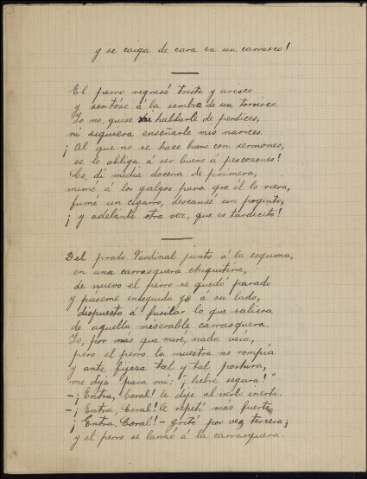 y se caiga de cara en un carrasco!
El perro regresó triste y arisco
y sentóse á la sombra de un torvisco
Yo me quise ni hablarle de perdices,
ni siquiera enseñarle mis narices.
¡Al que no se hace bueno con sermones,
se le obliga á ser bueno á pescozones!
Le dí media docena de primera,
mimé á los galgos para que él lo viera,
fumé un cigarro, descansé un poquito,
¡y adelante otra vez, que es tardecito!
Del prado Pardinal junto á la esquina,
en una carrasquera chiquitina,
de nuevo el perro se quedó parado
y páseme enseguida yo á su lado,
dispuesto á fusilar lo que saliera
de aquella miserable carrasquera.
Yo, por más que miré, nada veía,
pero el perro la muestra no rompía
y ante fijeza tal y tal postura,
me dije para mí: "¡liebre segura!"
-¡Entra, Coral! le dije al verle inerte.
-¡Entra, Coral! le repetí más fuerte
¡Entra Coral! - grité por vez tercera;
y el perro se lanzó á la carrasquera.